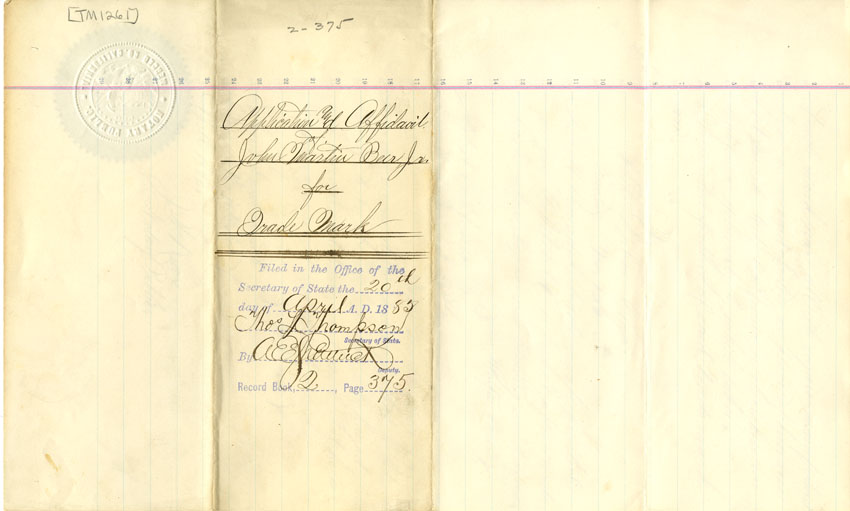 [TM1261]
2-375
Application & Affidavit
of
John Martin
for
Trade Mark
Filed in the Office of the
Secretary of State the 20th
day of April A.D. 1883
Thos L Thompson
Secretary of State.
By
Deputy.
Record Book, 2, Page 375.
NOTARY PUBLIC